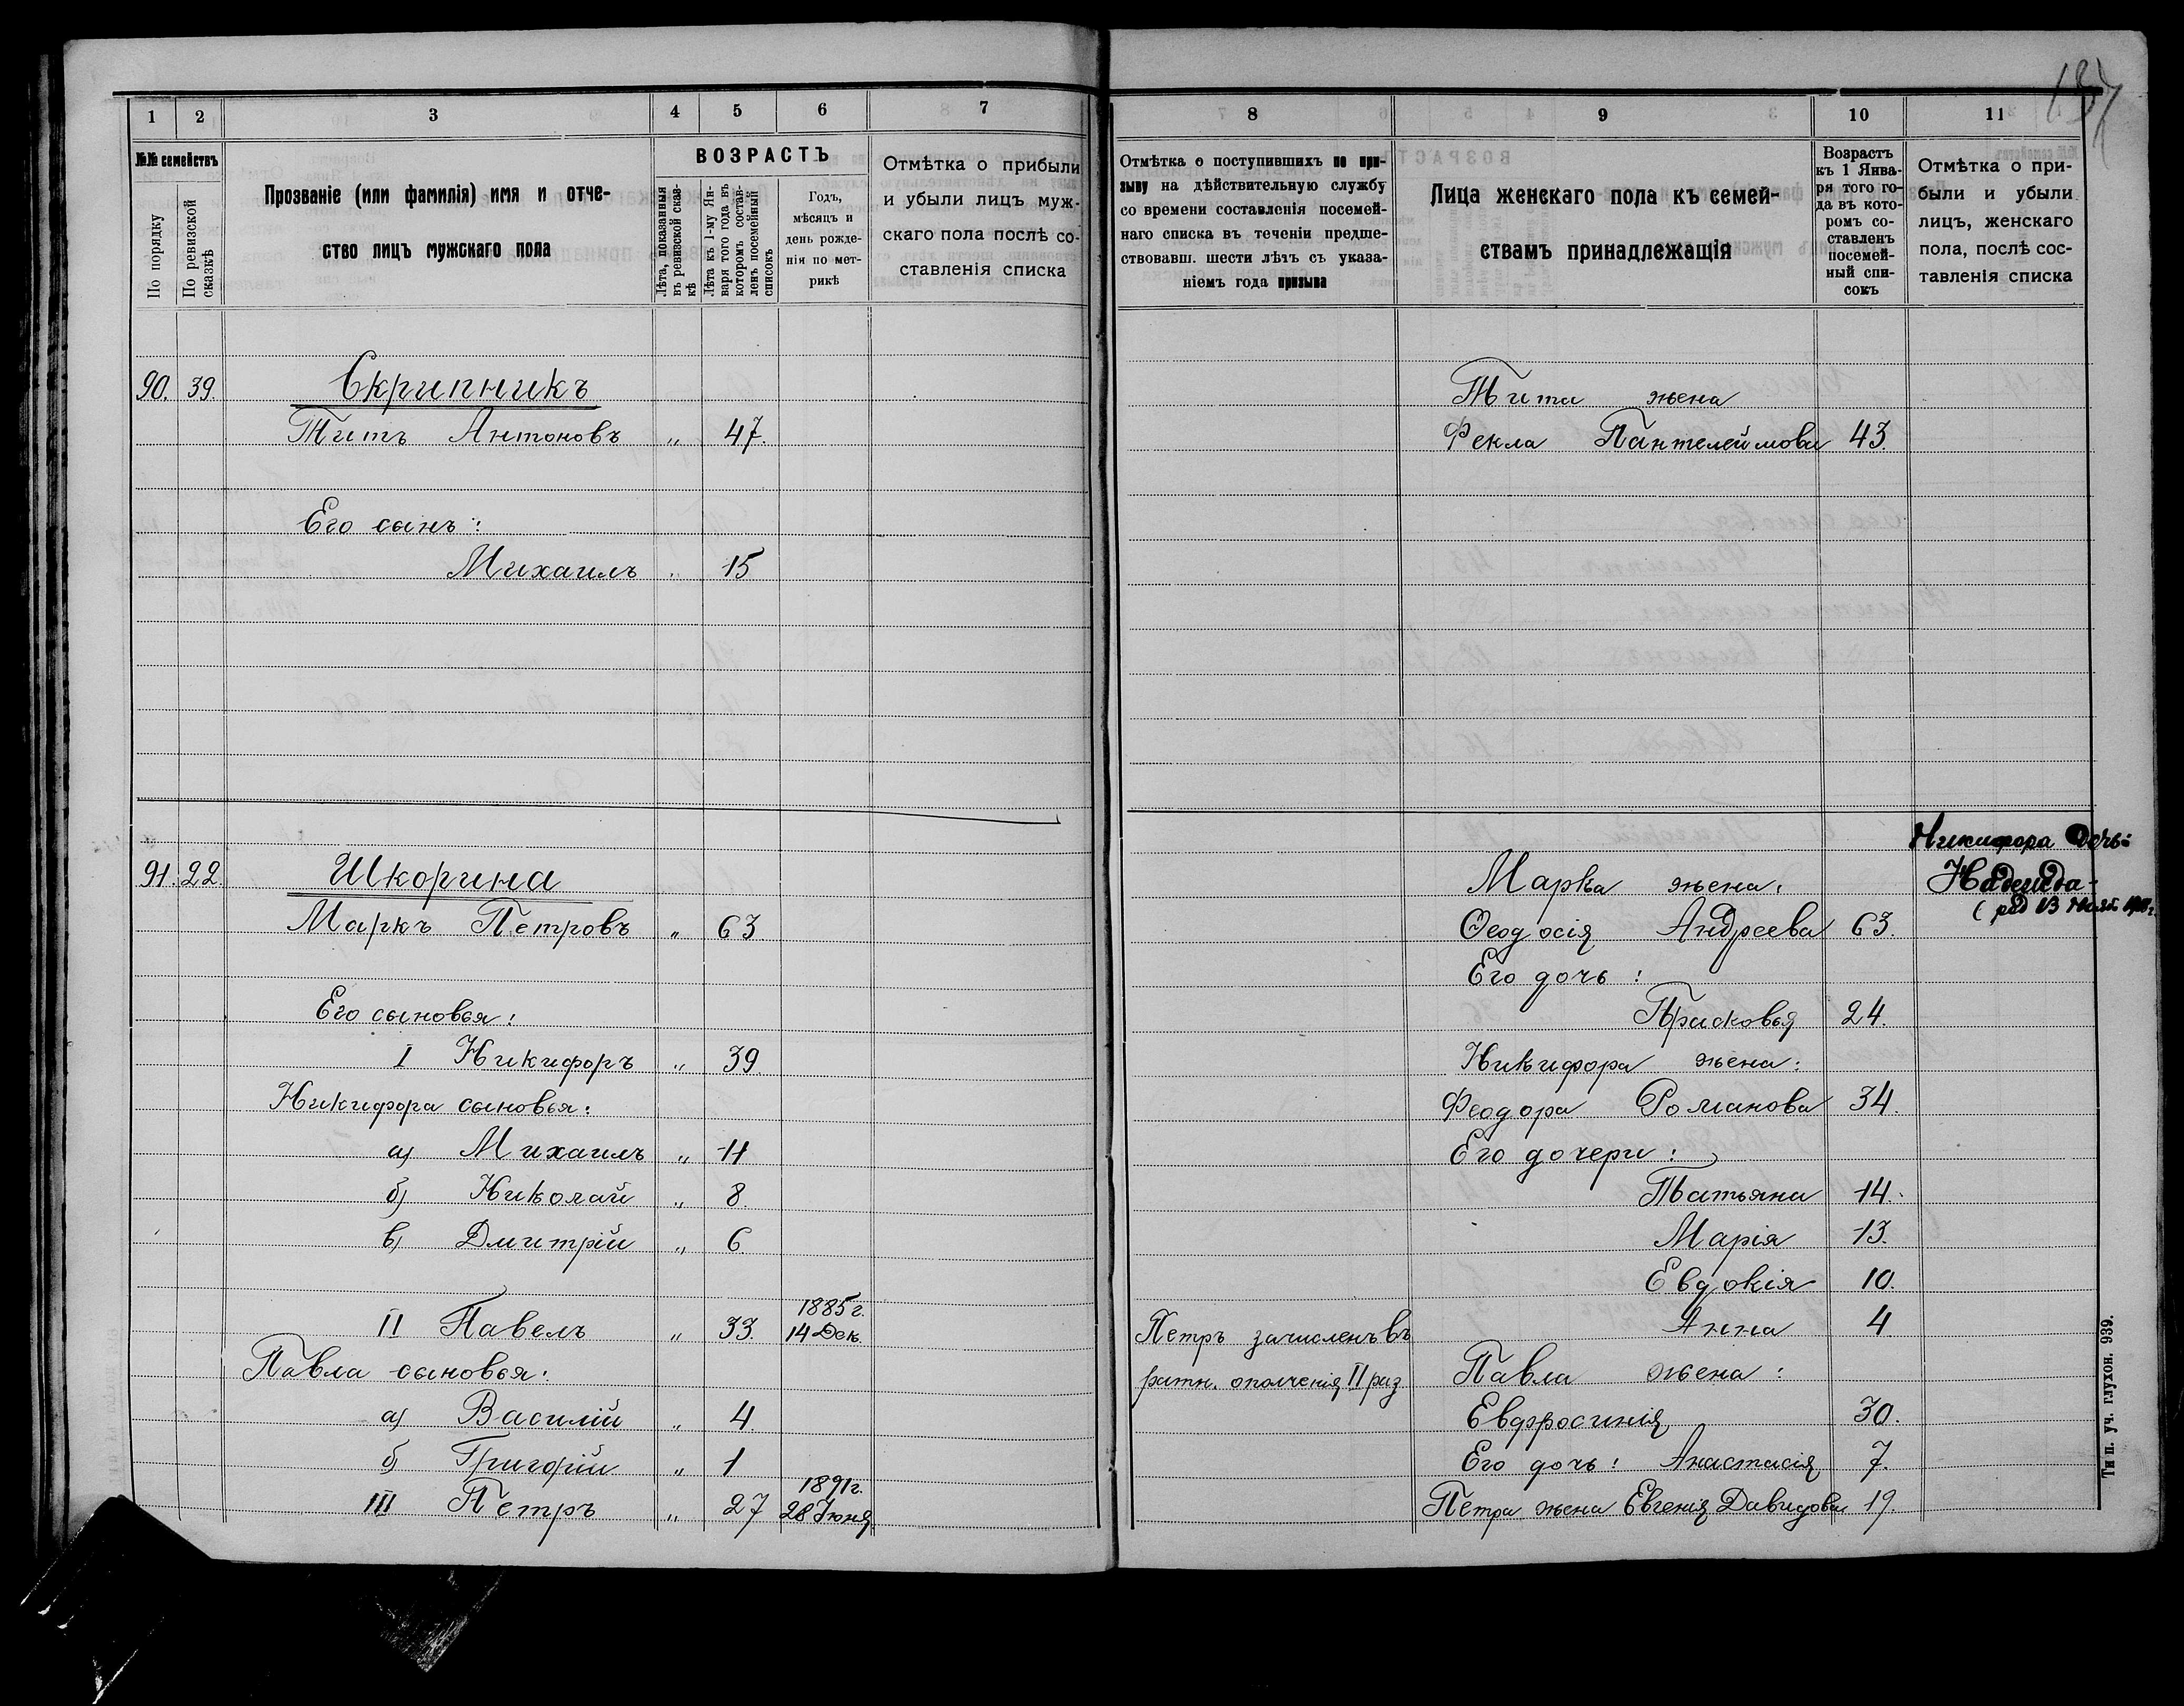 137
1 2 3 4 5 6 7
№№ семействъ
По порядку
По ревизской сказкѣ
Прозваніе (или фамилія) имя и отче-
ство лицъ мужскаго пола
ВОЗРАСТЪ
Лѣта, показанныя въ ревизской сказ-кѣ
Лѣта къ 1-му Ян-варя того года въ которомъ состав-ленъ посемейный списокъ
Годъ,
мѣсяцъ и
день рожде-
нія по мет-
рикѣ
Отмѣтка о прибыли
и убыли лицъ муж-
скаго пола послѣ со-
ставленія списка
90. 39. Скрипникъ
Титъ Антоновъ „ 47.
Его сынъ:
Михаилъ „ 15
91. 22. Шкорина
Маркъ Петровъ „ 63
Его сыновья:
I Никифоръ „ 39.
Никифора сыновья:
а) Михаилъ „ 11
б) Николай „ 8.
в) Дмитрій „ 6.
II Павелъ „ 33. 1885 г.
14 Дек.
Павла сыновья:
а) Василій „ 4.
б) Григорій „ 1
III Петръ „ 27 1891 г.
28 Іюня
8 9 10 11
Отмѣтка о поступившихъ по при-
зыву на дѣйствительную службу
со времени составленія посемей-
наго списка въ теченіи предше-
ствовавш. шести лѣтъ съ указа-
ніемъ года призыва
Лица женскаго пола къ семей-
ствамъ принадлежащія
Возрастъ
къ 1 Янва-
ря того го-
да въ кото-
ромъ со-
ставленъ
посемей-
ный спи-
сокъ
Отмѣтка о при-
были и убыли
лицъ, женскаго
пола, послѣ сос-
тавленія списка
Тита жена
Фекла Пантелеймова 43.
Никифора дочь:
Марка жена: Надежда
Ѳеодосія Андреева 63.
Его дочь:
Прасковья 24.
Никифора жена:
Феодора Романова 34.
Его дочери:
Татьяна 14.
Марія 13.
Евдокія 10.
Анна 4
Петръ зачисленъ въ
ратн. ополченія II раз.
Павла жена:
Евфросинія 30.
Его дочь: Анастасія 7.
Петра жена Евгенія Давидова 19.
Тип. уч. глухон. 939.